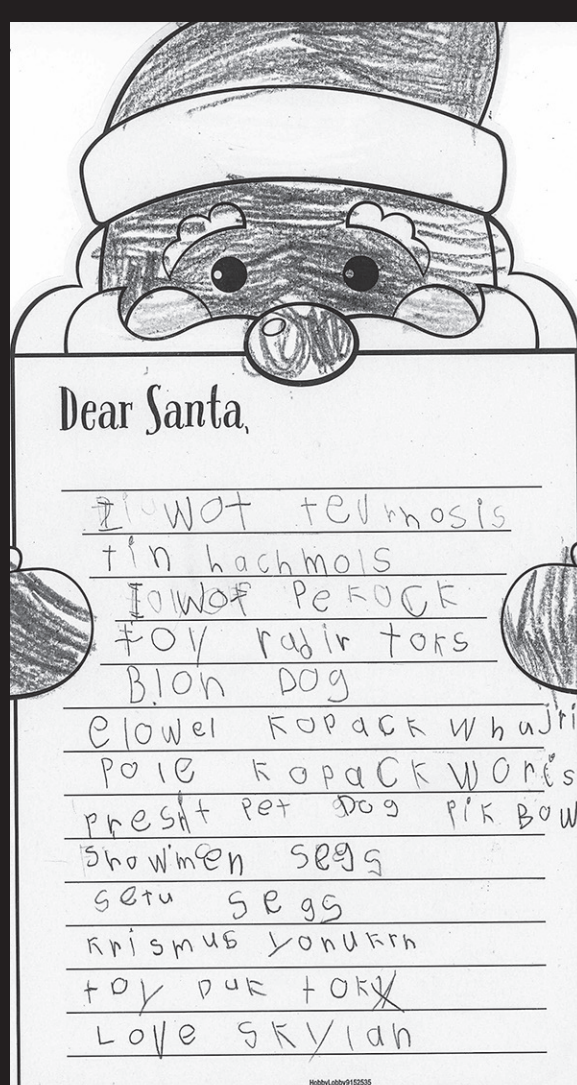 Dear Santa,
I wot teurnosis
tin hachmols
I wot Pekock
toy radir toks
Blon Dog
elowel Kopack whujri
Pole Kopack Worts
presnt Pet Dog Pik Bow
snowmen segs
setu segs
krismus yonukrn
toy Duk tok
Love Skylan
HobbyLobby9152535